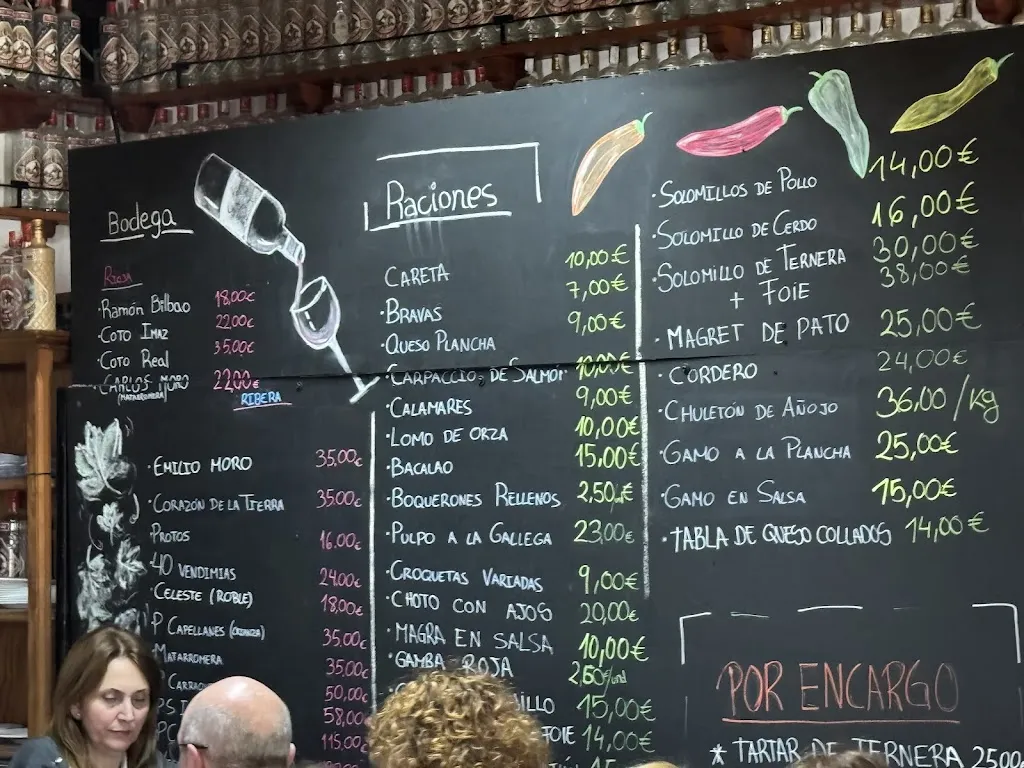 Bodega
Rioja
·Ramón Bilbao 18,00€
·Coto Imaz 22,00€
·Coto Real 35,00€
·Carlos Moro 22,00€
(Matarromera)
RIBERA
·Emilio Moro 35,00€
·Corazón de la Tierra 35,00€
·Protos 16,00€
·40 Vendimias 24,00€
Celeste (Roble) 18,00€
P Capellanes (crianza) 35,00€
Matarromera 35,00€
50,00€
58,00€
115,00€
Raciones
Careta 10,00€
·Bravas 7,00€
·Queso Plancha 9,00€
·Carpaccio de Salmón 10,00€
·Calamares 9,00€
·Lomo de Orza 10,00€
·Bacalao 15,00€
·Boquerones Rellenos 2,50€
·Pulpo a la Gallega 23,00€
·Croquetas Variadas 9,00€
·Choto con Ajos 20,00€
·Magra en Salsa 10,00€
·Gamba Roja 2,60€/und
15,00€
Foie 14,00€
·Solomillos de Pollo 14,00€
·Solomillo de Cerdo 16,00€
·Solomillo de Ternera 30,00€
+ Foie 38,00€
·Magret de Pato 25,00€
·Cordero 24,00€
·Chuletón de Añojo 36,00/kg
·Gamo a la Plancha 25,00€
·Gamo en Salsa 15,00€
·Tabla de Queso Collados 14,00€
POR ENCARGO
* Tartar de Ternera 25,00€